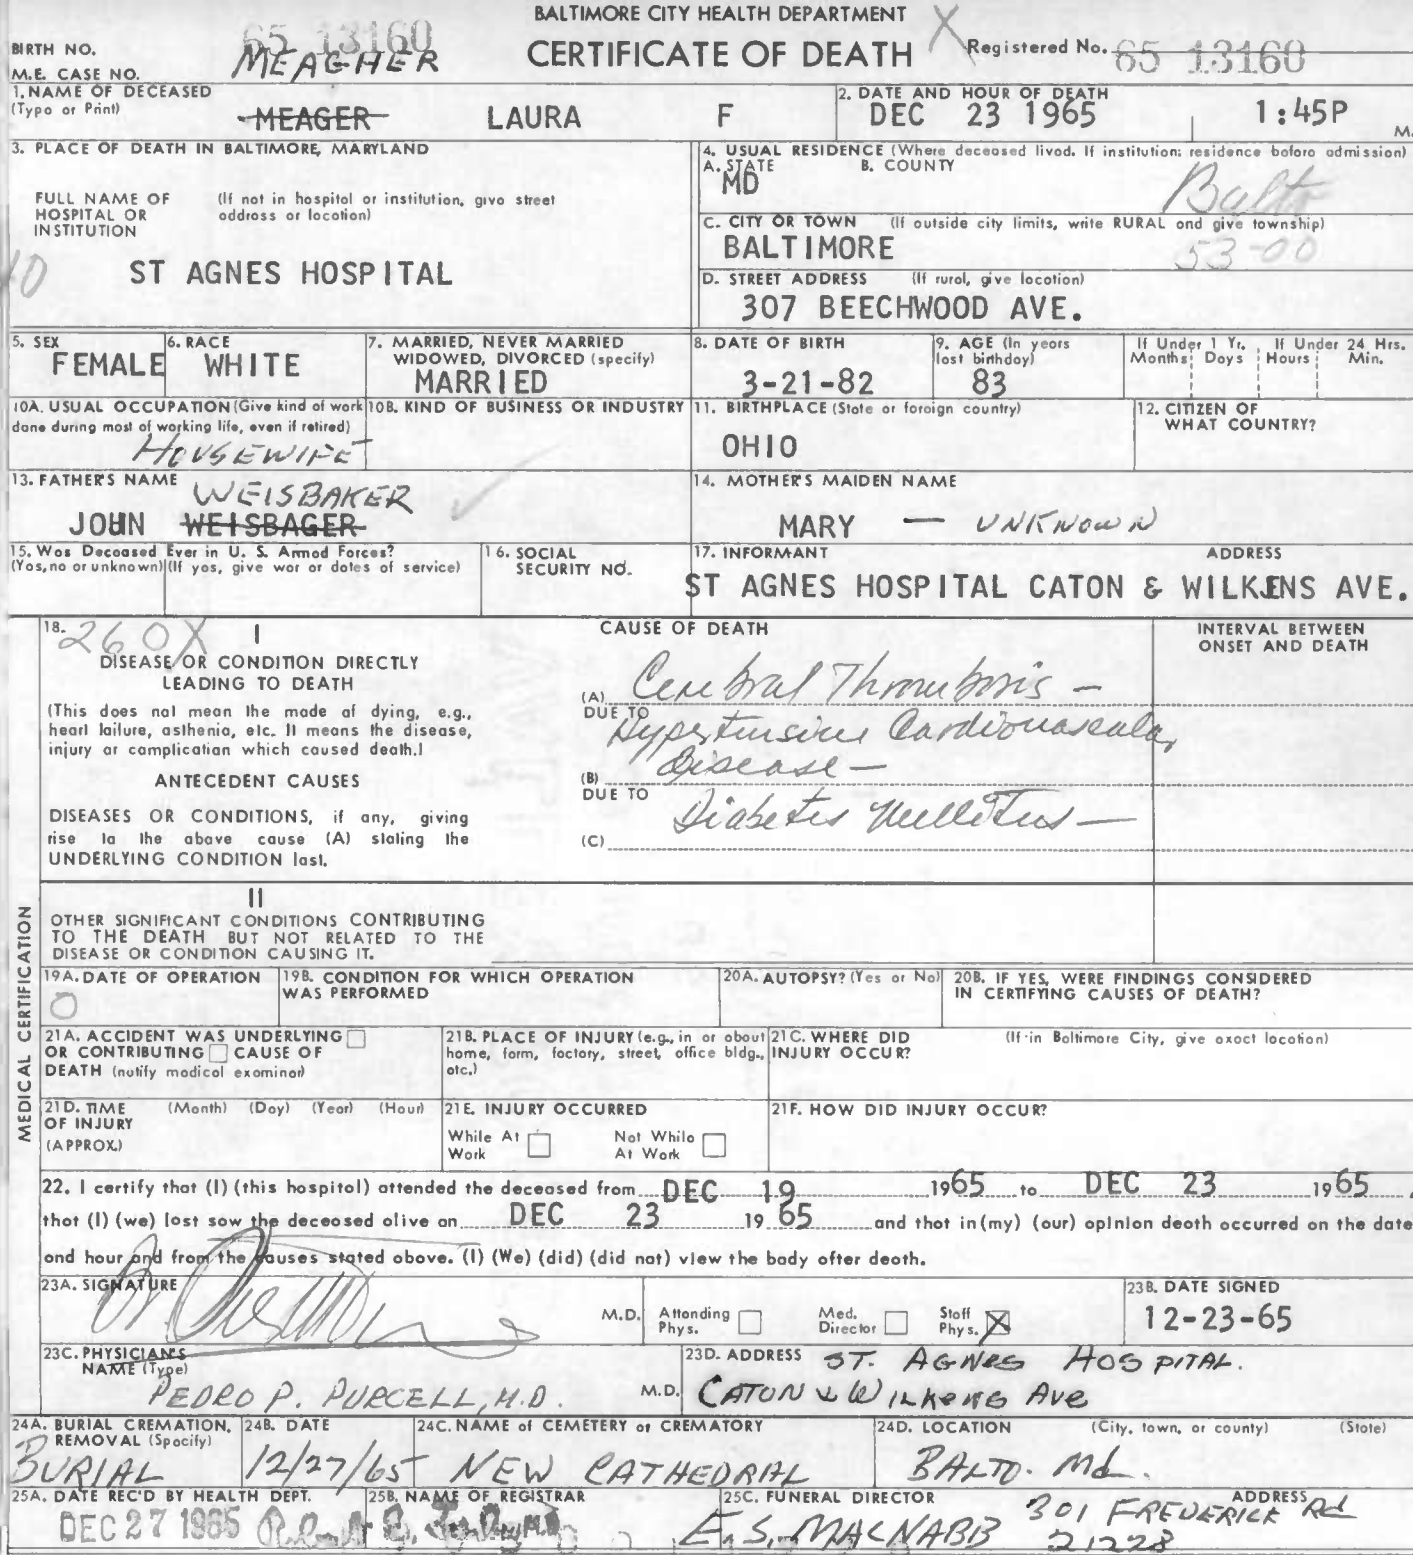 BALTIMORE CITY HEALTH DEPARTMENT
CERTIFICATE OF DEATH
BIRTH NO.
65 13160
MEAGHER
X
Registered No. 65 13160
M.E. CASE NO.
1. NAME OF DECEASED
(Type or Print)
MEAGER LAURA F
2. DATE AND HOUR OF DEATH
DEC 23 1965 1:45P M.
3. PLACE OF DEATH IN BALTIMORE, MARYLAND
FULL NAME OF HOSPITAL OR INSTITUTION
(If not in hospital or institution, give street address or location)
ST AGNES HOSPITAL
4. USUAL RESIDENCE (Where deceased lived. If institution: residence before admission)
A. STATE B. COUNTY
MD Balto
C. CITY OR TOWN (If outside city limits, write RURAL and give township)
BALTIMORE 53-00
D. STREET ADDRESS (If rural, give location)
307 BEECHWOOD AVE.
5. SEX
FEMALE
6. RACE
WHITE
7. MARRIED, NEVER MARRIED
WIDOWED, DIVORCED (specify)
MARRIED
8. DATE OF BIRTH
3-21-82
9. AGE (In years last birthday)
83
If Under 1 Yr. If Under 24 Hrs.
Months Days Hours Min.
10A. USUAL OCCUPATION (Give kind of work done during most of working life, even if retired)
HOUSEWIFE
10B. KIND OF BUSINESS OR INDUSTRY
11. BIRTHPLACE (State or foreign country)
OHIO
12. CITIZEN OF WHAT COUNTRY?
13. FATHER'S NAME
WEISBAKER
JOHN WEISBAGER
14. MOTHER'S MAIDEN NAME
MARY — UNKNOWN
15. Was Deceased Ever in U. S. Armed Forces?
(Yes, no or unknown) (If yes, give war or dates of service)
16. SOCIAL SECURITY NO.
17. INFORMANT ADDRESS
ST AGNES HOSPITAL CATON & WILKENS AVE.
18. 260X
I
DISEASE OR CONDITION DIRECTLY
LEADING TO DEATH
(This does not mean the mode of dying, e.g.,
heart failure, asthenia, etc. It means the disease,
injury or complication which caused death.)
ANTECEDENT CAUSES
DISEASES OR CONDITIONS, if any, giving
rise to the above cause (A) stating the
UNDERLYING CONDITION last.
CAUSE OF DEATH
INTERVAL BETWEEN
ONSET AND DEATH
(A) Cerebral Thrombosis —
DUE TO
Hypertensive Cardiovascular
(B) Disease —
DUE TO
Diabetes Mellitus —
(C)
II
OTHER SIGNIFICANT CONDITIONS CONTRIBUTING
TO THE DEATH BUT NOT RELATED TO THE
DISEASE OR CONDITION CAUSING IT.
MEDICAL CERTIFICATION
19A. DATE OF OPERATION
0
19B. CONDITION FOR WHICH OPERATION WAS PERFORMED
20A. AUTOPSY? (Yes or No)
20B. IF YES, WERE FINDINGS CONSIDERED IN CERTIFYING CAUSES OF DEATH?
21A. ACCIDENT WAS UNDERLYING
OR CONTRIBUTING CAUSE OF
DEATH (notify medical examiner)
21B. PLACE OF INJURY (e.g., in or about
home, farm, factory, street, office bldg., etc.)
21C. WHERE DID INJURY OCCUR?
(If in Baltimore City, give exact location)
21D. TIME OF INJURY (APPROX.)
(Month) (Day) (Year) (Hour)
21E. INJURY OCCURRED
While At Work Not While At Work
21F. HOW DID INJURY OCCUR?
22. I certify that (I) (this hospital) attended the deceased from DEC 19 1965 to DEC 23 1965,
that (I) (we) last saw the deceased alive on DEC 23 19 65 and that in (my) (our) opinion death occurred on the date
and hour and from the causes stated above. (I) (We) (did) (did not) view the body after death.
23A. SIGNATURE
M.D. Attending Phys. Med. Director Staff Phys. X
23B. DATE SIGNED
12-23-65
23C. PHYSICIAN'S NAME (Type)
PEDRO P. PURCELL, M.D. M.D.
23D. ADDRESS ST. AGNES HOSPITAL.
CATON & WILKENS AVE
24A. BURIAL CREMATION, REMOVAL (Specify)
BURIAL
24B. DATE
12/27/65
24C. NAME of CEMETERY or CREMATORY
NEW CATHEDRAL
24D. LOCATION (City, town, or county) (State)
BALTO. Md.
25A. DATE REC'D BY HEALTH DEPT.
DEC 27 1965
25B. NAME OF REGISTRAR
25C. FUNERAL DIRECTOR ADDRESS
E. S. MACNABB 301 FREDERICK Rd
21228